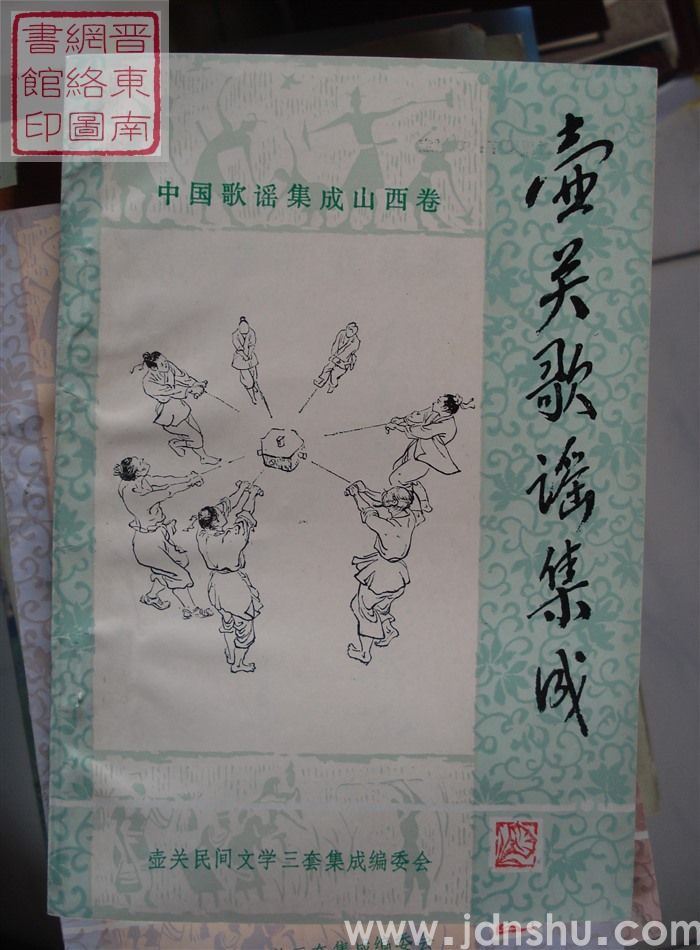 晋東南
網絡圖
書館印
中国歌谣集成山西卷
壶关歌谣集成
壶关民间文学三套集成编委会
三套集成编委会
www.jdnshu.com